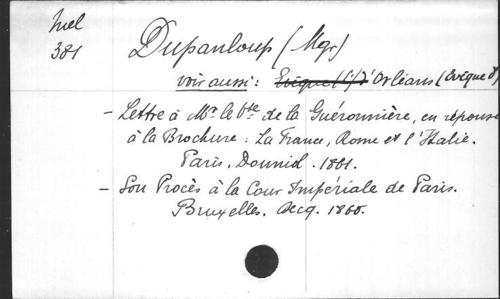 Mel
381
Dupanloup (Mgr)
voir aussi: Evêque (l') d'Orléans (Evêque d')
- Lettre à Mr. le Vte. de la Guéronnière, en réponse
à la Brochure: La France, Rome et l'Italie.
Paris, Douniol. 1861.
- Son Procès à la Cour Impériale de Paris.
Bruxelles. Decq. 1860.